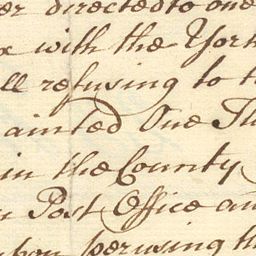 er directed to one
x with the York
ll refusing to t
ainted One Th
in the County
Post Office an
upon perusing th